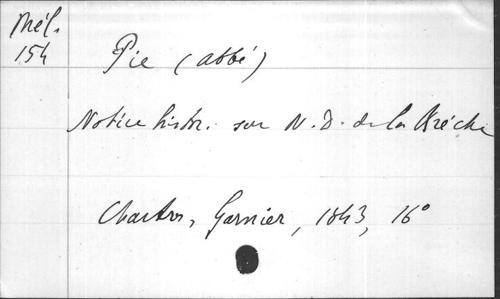 Mél.
154
Pie (abbé)
Notice histr. sur N. D. de la Brèche
Chartres, Garnier, 1843, 16°